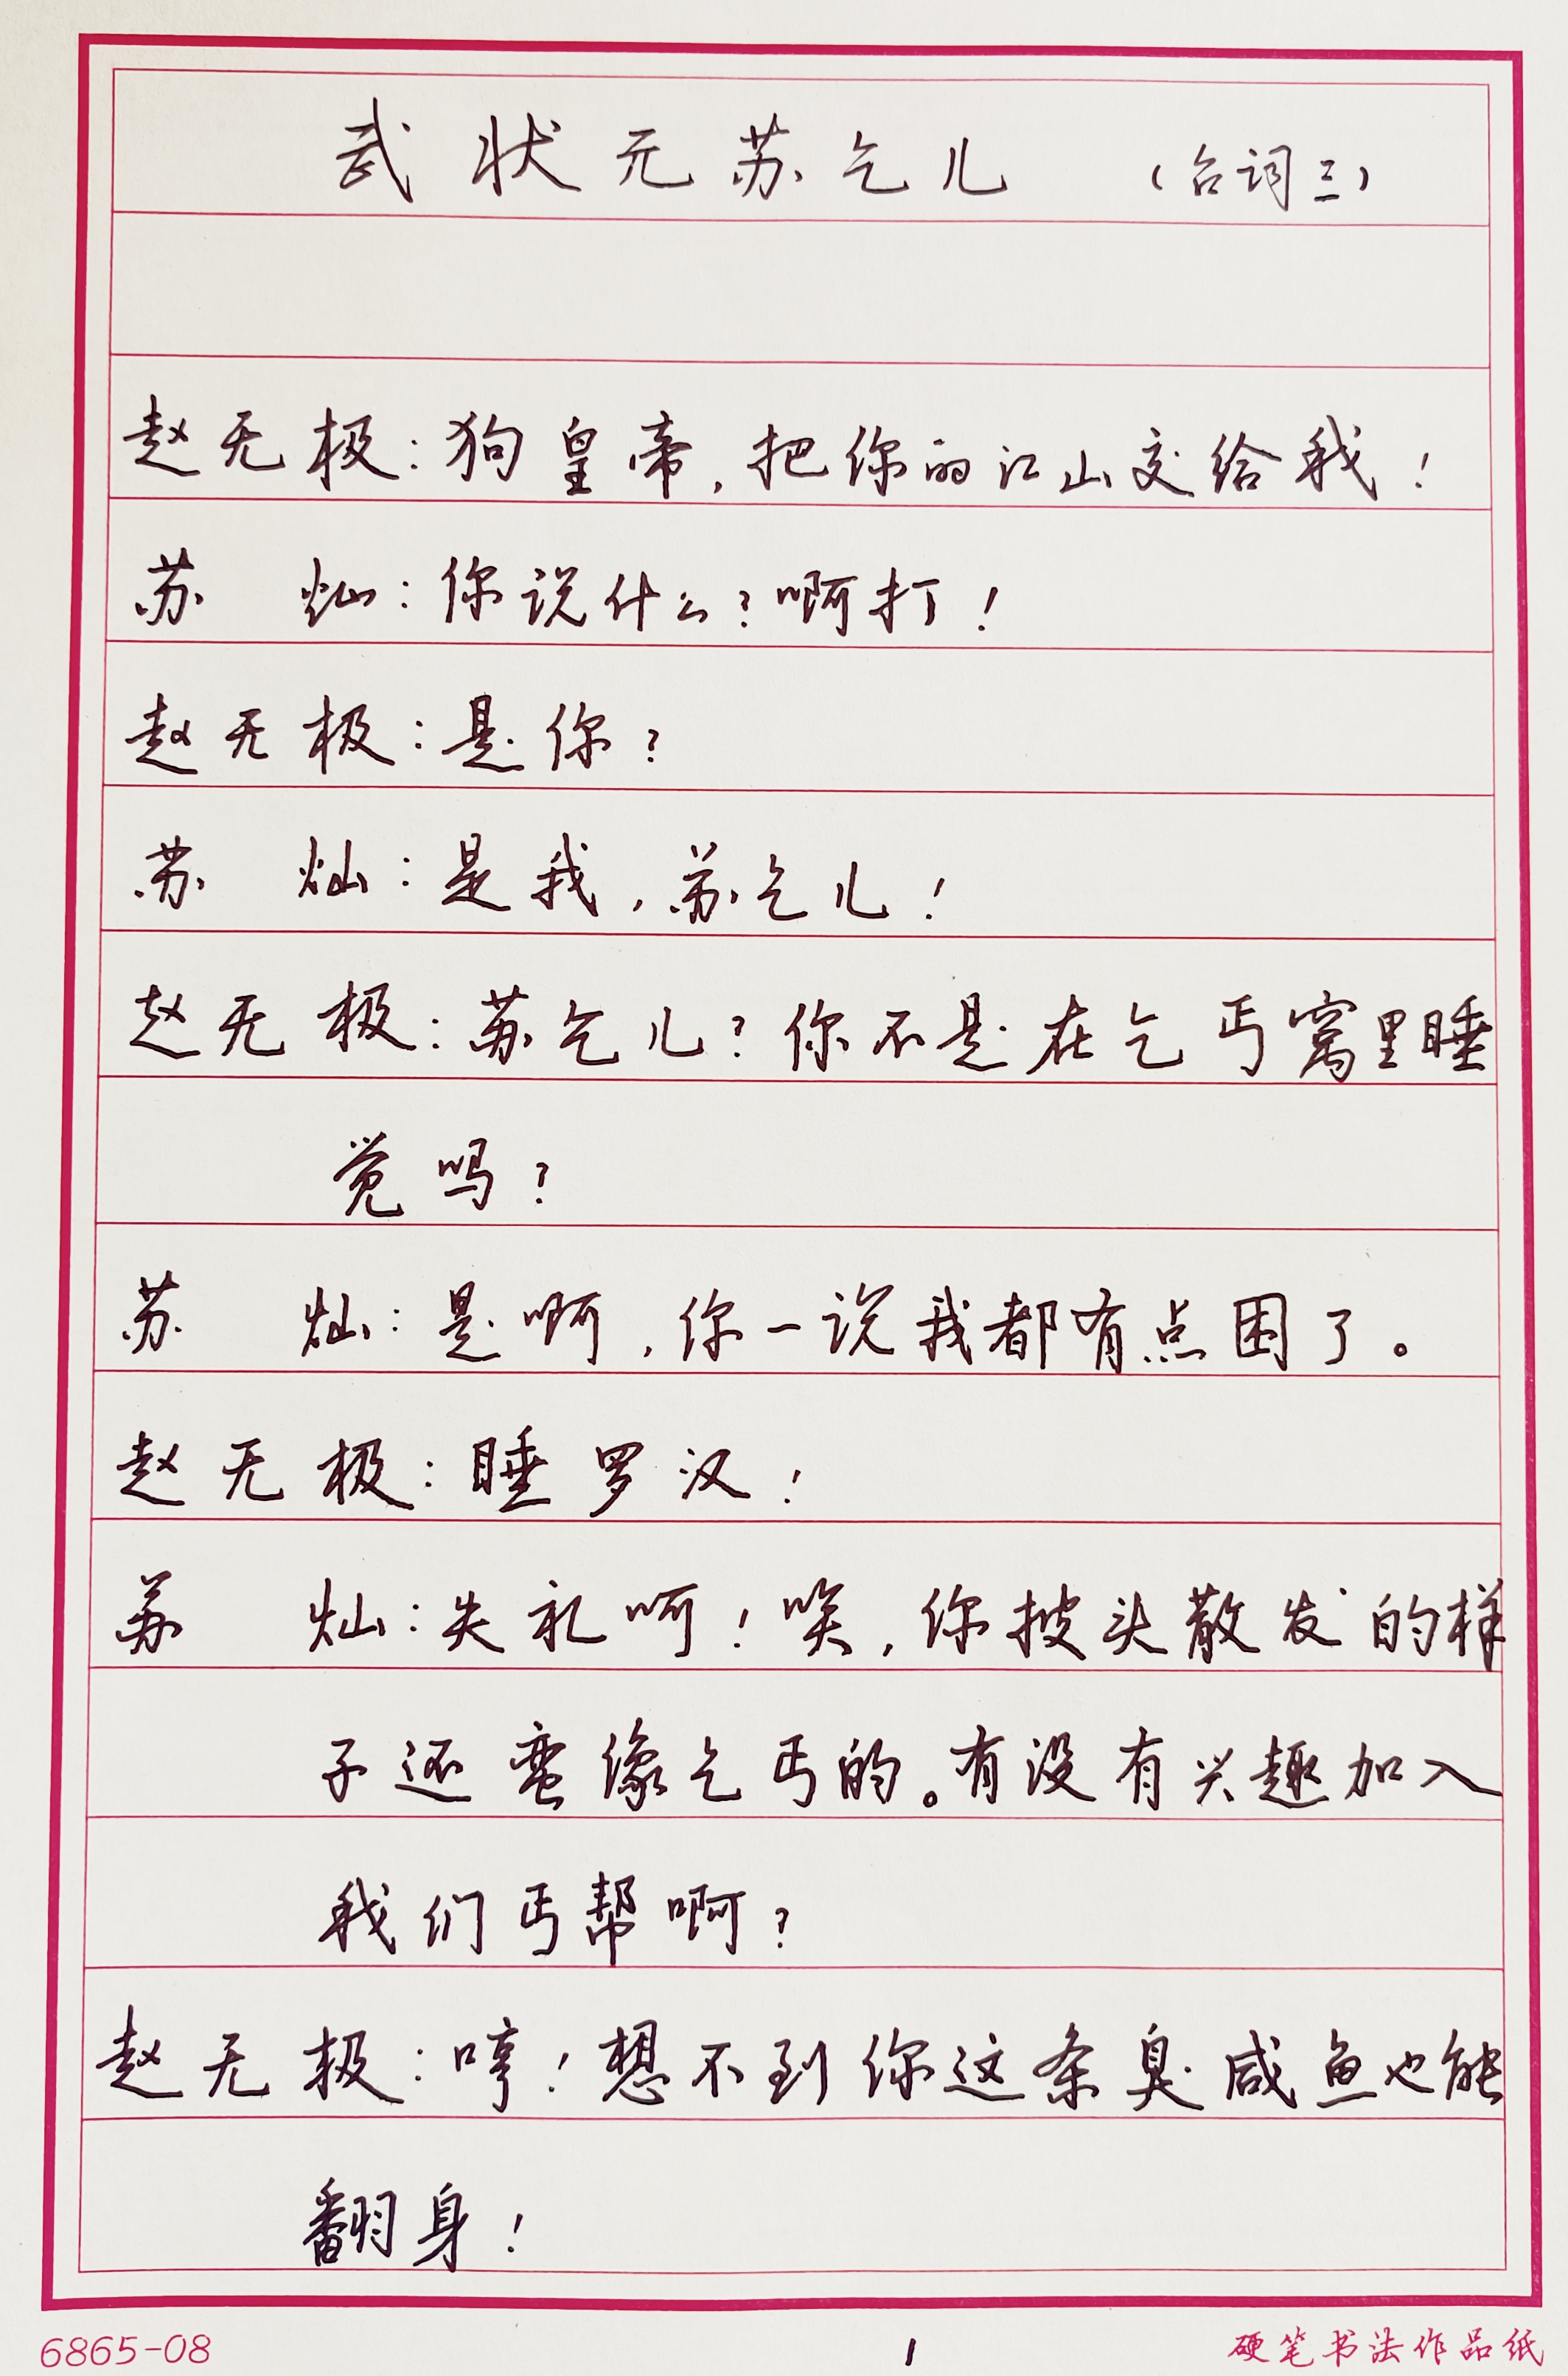 武状元苏乞儿 （台词三）
赵无极：狗皇帝，把你的江山交给我！
苏 灿：你说什么？啊打！
赵无极：是你？
苏 灿：是我，苏乞儿！
赵无极：苏乞儿？你不是在乞丐窝里睡
觉吗？
苏 灿：是啊，你一说我都有点困了。
赵无极：睡罗汉！
苏 灿：失礼呵！唉，你披头散发的样
子还蛮像乞丐的。有没有兴趣加入
我们丐帮啊？
赵无极：哼！想不到你这条臭咸鱼也能
翻身！
6865-08 1 硬笔书法作品纸